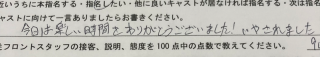 近いうちに本指名する・指名したい・他に良いキャストが居なければ指名する・次は指名
ャストに向けて一言ありましたらお書きください。
今日は楽しい時間をありがとうございました！いやされました
店フロントスタッフの接客、説明、態度を100点中の点数で教えてください。